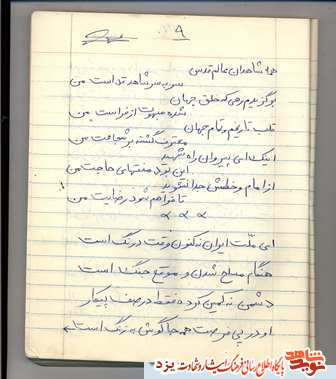 ۹
همه شاهدان عالم قدس
سر سر شاهد تو است من
برگزیدم رهی که خلق جهان
شده مبهوت از فراست من
قلب تاریخ و تمام جهان
معترف گشته بر شجاعت من
اینک ای پیروان راه شهید
این بود منتهای حاجت من
از امام و خطش جدا نشوید
تا فراهم شود رضایت من
ای ملت ایران نه کنون وقت درنگ است
هنگام مسلح شدن و موقع جنگ است
دشمن نه کمین کرده فقط در صف پیکار
او در پی فرصت همه جا گوش به زنگ است
نوید شاهد
پایگاه اطلاع رسانی فرهنگ ایثار و شهادت یزد